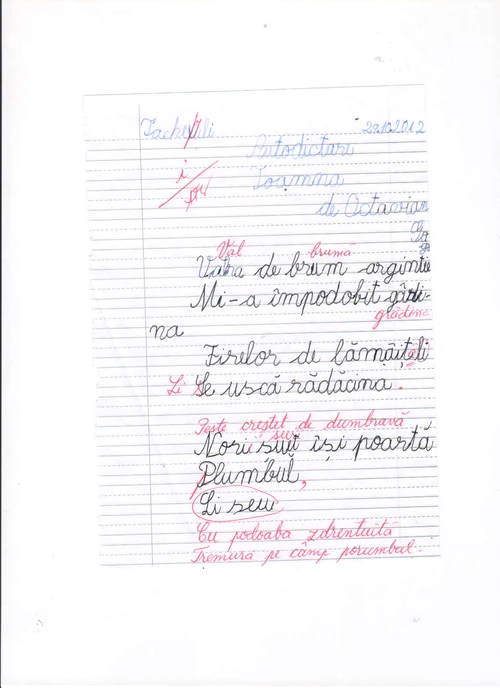 2012
Autodictare
Toamna
de Octavian
Văl brumă
de brum argintie
Mi-a împodobit
grădina
na
Firelor de lămâițeli
Li Se uscă rădăcina.
Peste creștet de dumbravă
sur
Nori suit își poartă
Plumbul,
Li seu
Cu podoaba zdrențuită
Tremură pe câmp porumbul.